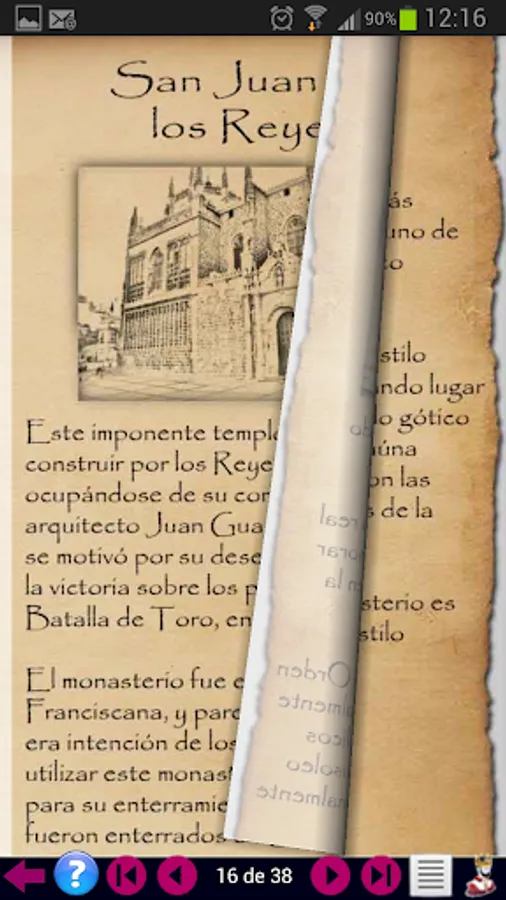 90% 12:16
San Juan
los Reye
ás
uno de
co
stilo
ando lugar
lo gótico
aúna
on las
s de la
sterio es
stilo
Este imponente templo
construir por los Reye
ocupándose de su con
arquitecto Juan Gua
se motivó por su dese
la victoria sobre los p
Batalla de Toro, en
real
orar
en la
Orden
almente
icos
oleo
nalmente
El monasterio fue e
Franciscana, y parc
era intención de los
utilizar este monast
para su enterramie
fueron enterrados
?
16 de 38